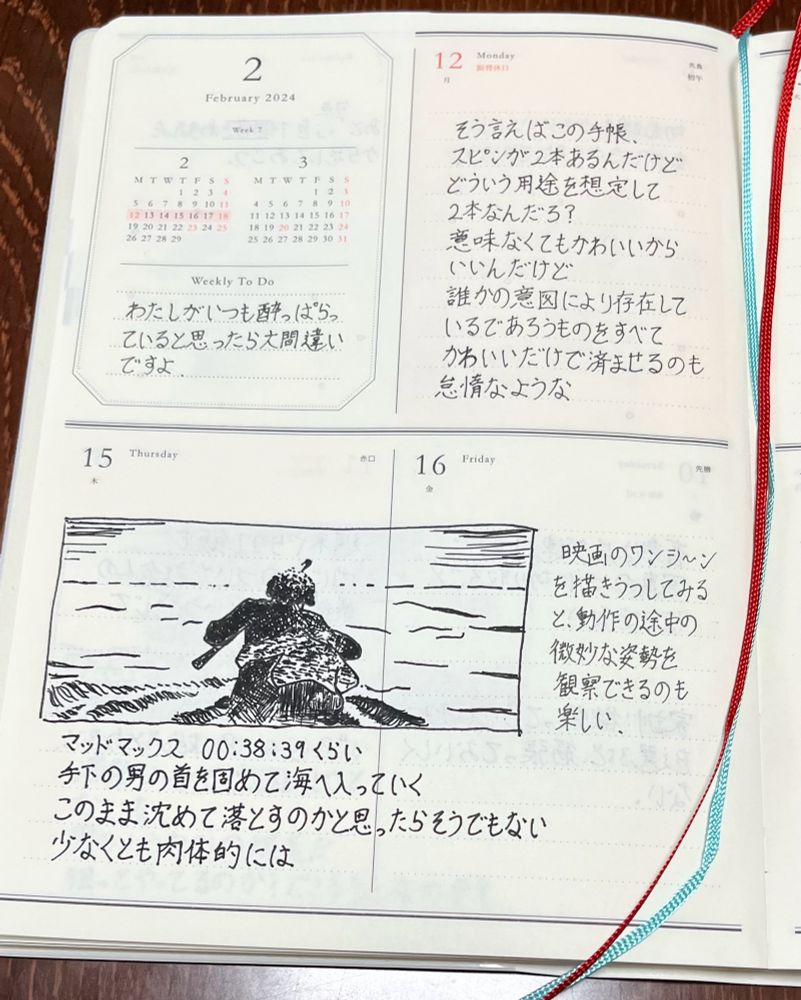 2
February 2024
Week 7
2
M T W T F S S
1 2 3 4
5 6 7 8 9 10 11
12 13 14 15 16 17 18
19 20 21 22 23 24 25
26 27 28 29
3
M T W T F S S
1 2 3
4 5 6 7 8 9 10
11 12 13 14 15 16 17
18 19 20 21 22 23 24
25 26 27 28 29 30 31
Weekly To Do
わたしがいつも酔っぱらっ
ていると思ったら大間違い
ですよ
12 Monday
振替休日
月
先負
初午
そう言えばこの手帳、
スピンが2本あるんだけど
どういう用途を想定して
2本なんだろ?
意味なくてもかわいいから
いいんだけど
誰かの意図により存在して
いるであろうものをすべて
かわいいだけで済ませるのも
怠惰なような
15 Thursday
木
赤口
マッドマックス 00:38:39くらい
手下の男の首を固めて海へ入っていく
このまま沈めて落とすのかと思ったらそうでもない
少なくとも肉体的には
16 Friday
金
先勝
映画のワンシ〜ン
を描きうつしてみる
と、動作の途中の
微妙な姿勢を
観察できるのも
楽しい、